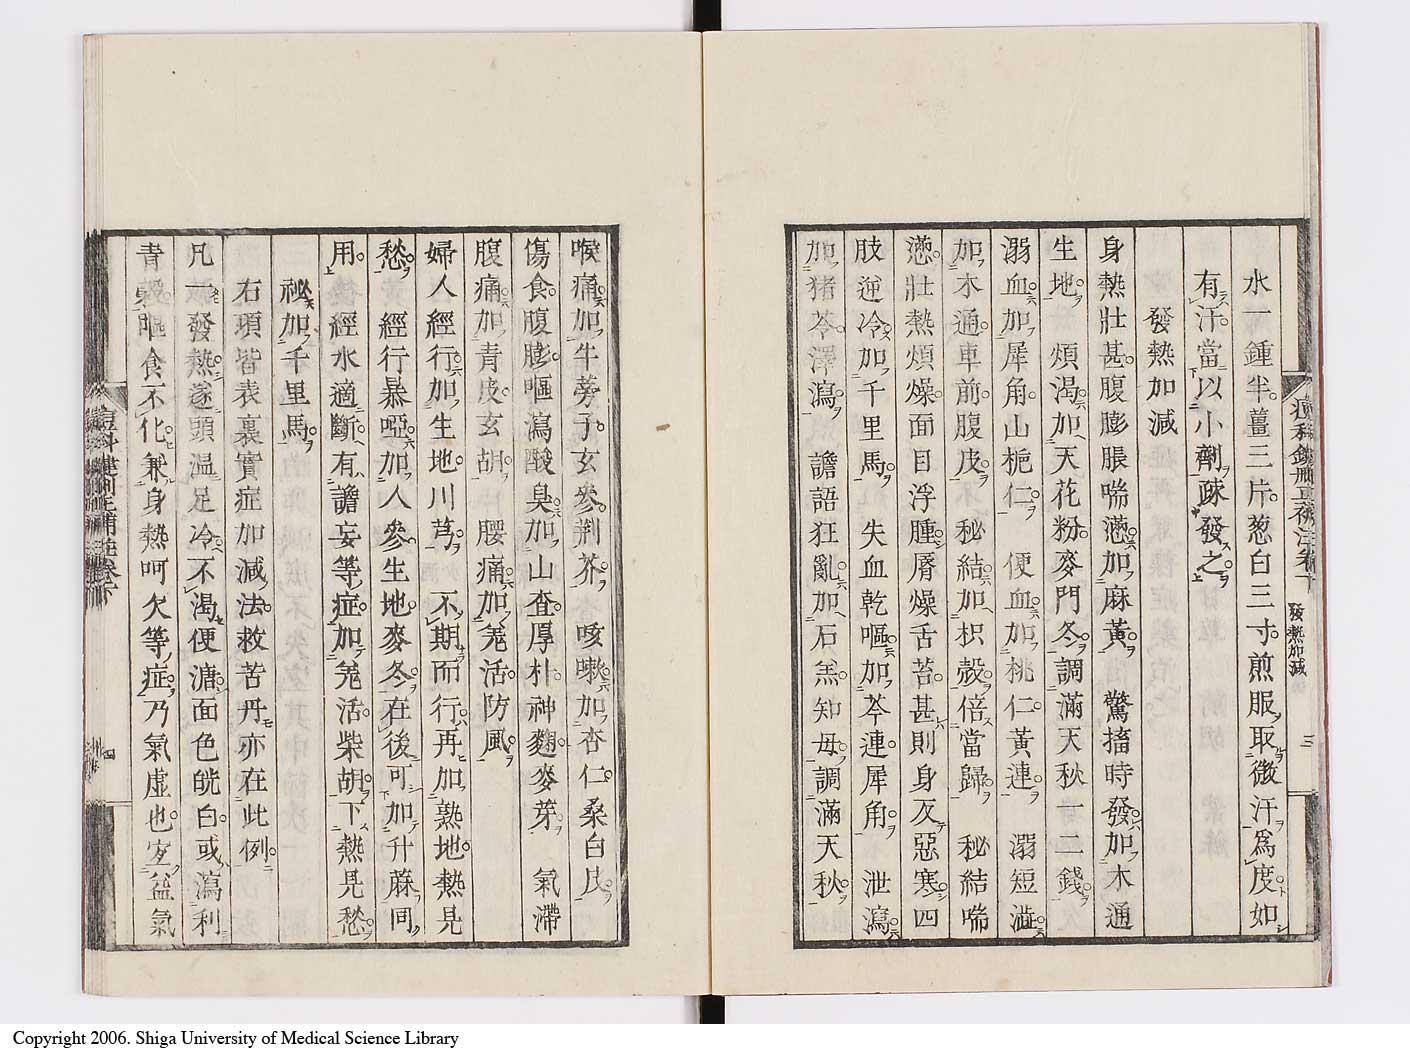 水一鍾半薑三片葱白三寸煎服取微汗爲度如
有汗當以小劑疎發之
發熱加減
身熱壯甚腹膨脹喘懣加麻黃　驚搐時發加木通
生地　煩渴加天花粉麥門冬調滿天秋一二錢
溺血加犀角山梔仁　便血加桃仁黃連　溺短澁
加木通車前腹皮　秘結加枳殼倍當歸　秘結喘
懣壯熱煩燥面目浮腫脣燥舌苔甚則身反惡寒四
肢逆冷加千里馬　失血乾嘔加芩連犀角　泄瀉
加猪苓澤瀉　譫語狂亂加石羔知母調滿天秋
發熱加減
三
喉痛加牛蒡子玄參荆芥　咳嗽加杏仁桑白皮
傷食腹膨嘔瀉酸臭加山査厚朴神麴麥芽　氣滯
腹痛加青皮玄胡　腰痛加羌活防風
婦人經行加生地川芎　不期而行再加熟地熱見
愁　經行暴啞加人參生地麥冬在後可加升蔴同
用　經水適斷有譫妄等症加羗活柴胡下熱見愁
秘加千里馬
右項皆表裏實症加減法救苦丹亦在此例
凡一發熱遂頭温足冷不渴便溏面色㿠白或瀉利
青穀嘔食不化兼身熱呵欠等症乃氣虚也宐益氣
四
Copyright 2006. Shiga University of Medical Science Library